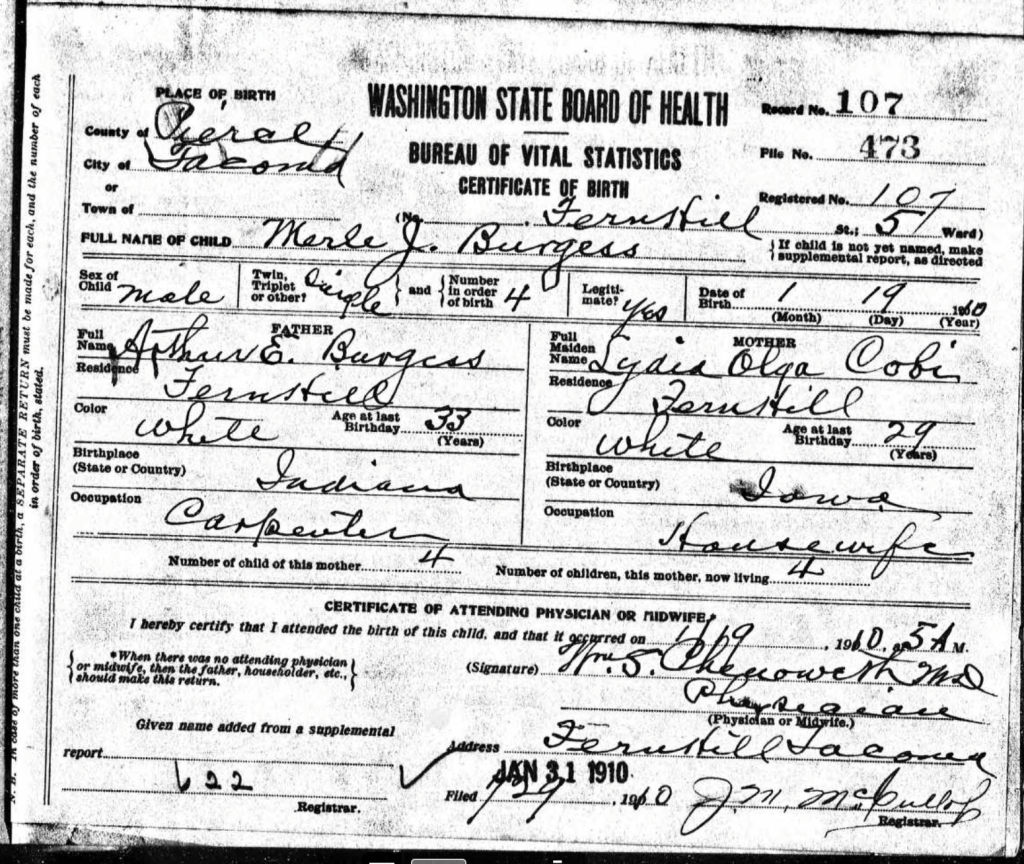 PLACE OF BIRTH
WASHINGTON STATE BOARD OF HEALTH
Record No. 107
County of
City of Tacoma
BUREAU OF VITAL STATISTICS
File No. 473
or
CERTIFICATE OF BIRTH
Registered No. 107
Town of
(No. Fernhill St.; 5 Ward)
FULL NAME OF CHILD Merle J. Burgess
{If child is not yet named, make
supplemental report, as directed
Sex of
Child male
Twin,
Triplet
or other? Single } and { Number
in order
of birth 4
Legiti-
mate? Yes
Date of
Birth 1 19 1910
(Month) (Day) (Year)
FATHER
Full
Name Arthur E. Burgess
Residence
Fernhill
Color
White
Age at last
Birthday 33
(Years)
Birthplace
(State or Country)
Indiana
Occupation
Carpenter
MOTHER
Full
Maiden
Name Lydia Olga
Residence
Fernhill
Color
White
Age at last
Birthday 29
(Years)
Birthplace
(State or Country)
Iowa
Occupation
Housewife
Number of child of this mother 4
Number of children, this mother, now living 4
CERTIFICATE OF ATTENDING PHYSICIAN OR MIDWIFE*
I hereby certify that I attended the birth of this child, and that it occurred on 1/19, 1910, at 5 A M.
{ *When there was no attending physician
or midwife, then the father, householder, etc.,
should make this return. }
(Signature) Wm. S. Chenoweth MD
Physician
(Physician or Midwife.)
Given name added from a supplemental
report
Address Fernhill Tacoma
JAN 31 1910
22
Registrar.
Filed 1/29, 1910 J. M. McCullop
Registrar.
N. B. In case of more than one child at a birth, a SEPARATE RETURN must be made for each, and the number of each
in order of birth, stated.